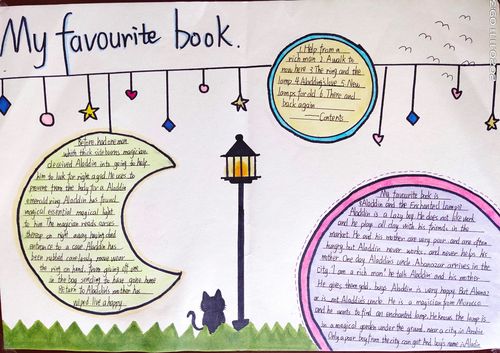 My favourite book.
1. Help from a
rich man 2. A walk to
now here 3. The ring and the
lamp 4. Aladdin's love 5. New
lamps for old 6. There and
back again
Contents
Before, had one man
which thick sideburns magician
deceived Aladdin into going to help
him to look for right aged. He uses to
prevent from the body for a Aladdin
emerald ring. Aladdin has found
magical essential magical light
to him. The magician reads curses
on right away, having
entrance to a cave. Aladdin has
been rubbed carelessly move wear
the ring on hand, from giving off
in the bag sending to have gone home
Return to Aladdin's mother has
wiped live a happy.
My favourite book is
Aladdin and the Enchanted Lamp
Aladdin is a lazy boy. He does not like work
and he plays all day with his friends in the
market. He and his mother are very poor and are often
hungry, but Aladdin never works and never helps his
mother. One day Aladdin's uncle Abanazar arrives in the
city. I am a rich man! He tells Aladdin and his mother.
He gives them gold. Aladdin is very happy. But Abanaz
ar is not Aladdin's uncle. He is a magician from Morocco
and he wants to find an enchanted lamp. He knows the lamp is
in a magical garden under the ground, near a city in Arabia.
Only a poor boy from the city can get it. And boy's name is Aladin.